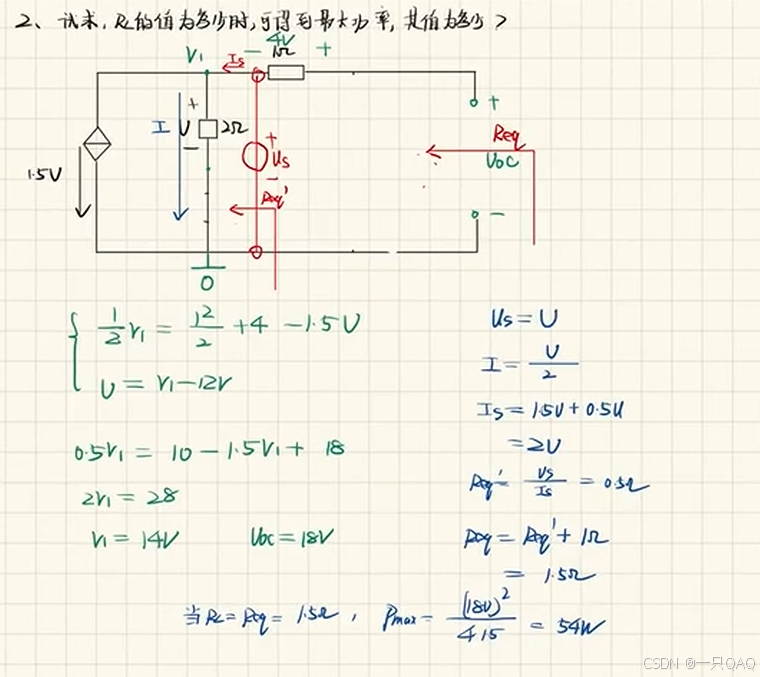 2、试求, RL的值为多少时,可得到最大功率, 其值为多少?
V1 Is - 4V +
1Ω
+
I U 2Ω
-
1.5V
+
Us
-
Req'
+
Req
Uoc
-
0
1/2 V1 = 12/2 + 4 - 1.5U
U = V1 - 12V
0.5V1 = 10 - 1.5V1 + 18
2V1 = 28
V1 = 14V Uoc = 18V
Us = U
I = U/2
Is = 1.5U + 0.5U
= 2U
Req' = Us/Is = 0.5Ω
Req = Req' + 1Ω
= 1.5Ω
当RL = Req = 1.5Ω, Pmax = (18V)²/4·1.5 = 54W
CSDN @一只QAQ